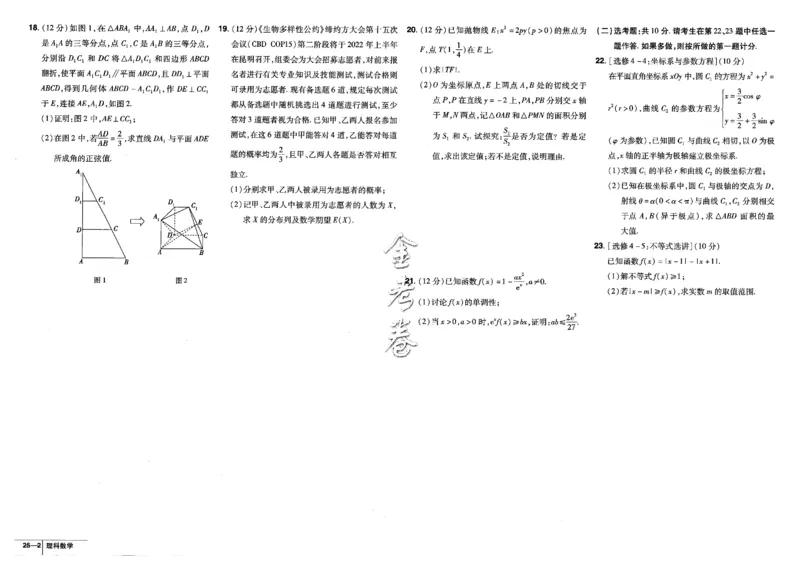 18.(12分)如图1,在△ABA₂中,AA₂⊥AB,点D₁,D
是A₂A的三等分点,点C₁,C是A₂B的三等分点,
分别沿D₁C₁和DC将△A₂D₁C₁和四边形ABCD
翻折,使平面A₁C₁D₁∥平面ABCD,且DD₁⊥平面
ABCD,得到几何体ABCD-A₁C₁D₁,作DE⊥CC₁
于E,连接AE,A₁D,如图2.
(1)证明:图2中,AE⊥CC₁;
(2)在图2中,若AD/AB=2/3,求直线DA₁与平面ADE
所成角的正弦值.
A₂
D₁
C₁
D
C
A
B
图1
D₁
C₁
A₁
E
D
C
A
B
图2
19.(12分)《生物多样性公约》缔约方大会第十五次
会议(CBD COP15)第二阶段将于2022年上半年
在昆明召开,组委会为大会招募志愿者,对前来报
名者进行有关专业知识及技能测试,测试合格则
可录用为志愿者.现有备选题6道,规定每次测试
都从备选题中随机选出4道题进行测试,至少
答对3道题者视为合格.已知甲、乙两人报名参加
测试,在这6道题中甲能答对4道,乙能答对每道
题的概率均为2/3,且甲、乙两人各题是否答对相互
独立.
(1)分别求甲、乙两人被录用为志愿者的概率;
(2)记甲、乙两人中被录用为志愿者的人数为X,
求X的分布列及数学期望E(X).
20.(12分)已知抛物线E:x²=2py(p>0)的焦点为
F,点T(1,1/4)在E上.
(1)求|TF|.
(2)O为坐标原点,E上两点A,B处的切线交于
点P,P在直线y=-2上,PA,PB分别交x轴
于M,N两点,记△OAB和△PMN的面积分别
为S₁和S₂.试探究:S₁/S₂是否为定值?若是定
值,求出该定值;若不是定值,说明理由.
21.(12分)已知函数f(x)=1-ax²/eˣ,a≠0.
(1)讨论f(x)的单调性;
(2)当x>0,a>0时,eˣf(x)≥bx,证明:ab≤2e³/27.
金考卷
(二)选考题:共10分.请考生在第22、23题中任选一
题作答.如果多做,则按所做的第一题计分.
22.[选修4-4:坐标系与参数方程](10分)
在平面直角坐标系xOy中,圆C₁的方程为x²+y²=
r²(r>0),曲线C₂的参数方程为{x=3/2cos φ
y=3/2+3/2sin φ
(φ为参数),已知圆C₁与曲线C₂相切,以O为极
点,x轴的正半轴为极轴建立极坐标系.
(1)求圆C₁的半径r和曲线C₂的极坐标方程;
(2)已知在极坐标系中,圆C₁与极轴的交点为D,
射线θ=α(0<α<π)与曲线C₁,C₂分别相交
于点A,B(异于极点),求△ABD面积的最
大值.
23.[选修4-5:不等式选讲](10分)
已知函数f(x)=|x-1|-|x+1|.
(1)解不等式f(x)≥1;
(2)若|x-m|≥f(x),求实数m的取值范围.
25—2 理科数学